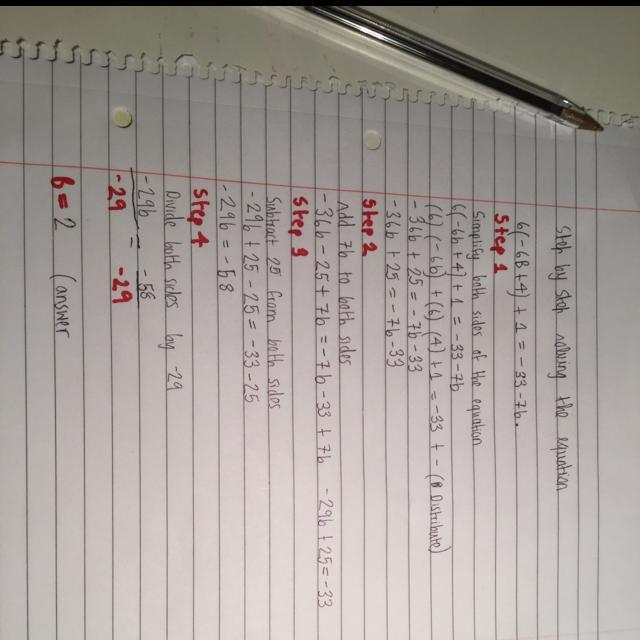 Step by Step solving the equation
6(-6B+4) + 1 = -33 -7b.
Step 1
Simplify both sides of the equation
6(-6b+4) + 1 = -33 -7b
(6)(-6b) + (6)(4) + 1 = -33 + - (Distribute)
-36b + 25 = -7b -33
-36b + 25 = -7b -33
Step 2
Add 7b to both sides
-36b -25 + 7b = -7b -33 + 7b -29b + 25 = -33
Step 3
Subtract 25 from both sides
-29b + 25 - 25 = -33 -25
-29b = -58
Step 4
Divide both sides by -29
-29b = -58
-29 -29
B = 2 (answer